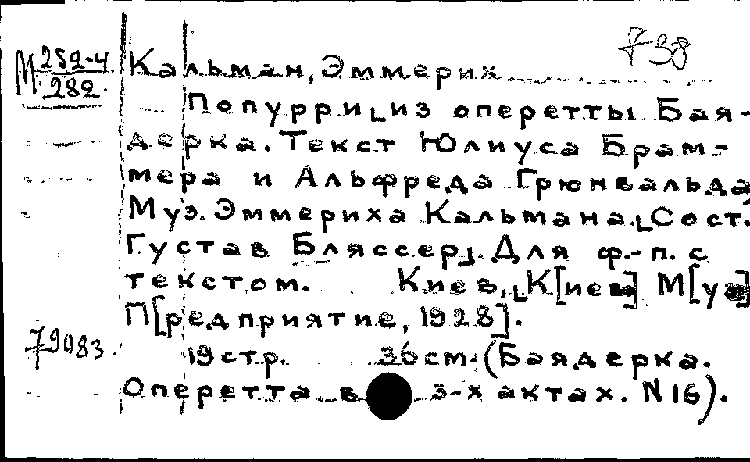 738
М 252-4
282.
Кальман, Эммерих
Попурри [из оперетты Бая-
дерка. Текст Юлиуса Брам-
мера и Альфреда Грюнвальда,
Муз. Эммериха Кальмана. [Сост.
Густав Бляссер]. Для ф.-п. с
текстом. Киев, [К[иев] М[уз]
П[редприятие, 1928].
79083.
19 стр. 36 см. (Баядерка.
Оперетта в 3-х актах. N 16).